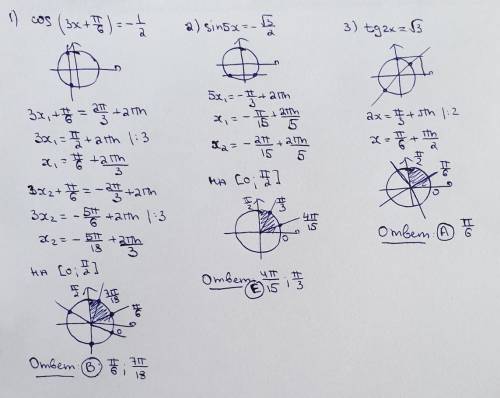 1) cos (3x + π/6) = -1/2
3x₁ + π/6 = 2π/3 + 2πn
3x₁ = π/2 + 2πn |:3
x₁ = π/6 + 2πn/3
3x₂ + π/6 = -2π/3 + 2πn
3x₂ = -5π/6 + 2πn |:3
x₂ = -5π/18 + 2πn/3
на [0; π/2]
π/2 7π/18 π/6 0
Ответ: В: π/6; 7π/18
2) sin5x = -√3/2
5x₁ = -π/3 + 2πn
x₁ = -π/15 + 2πn/5
x₂ = -2π/15 + 2πn/5
на [0; π/2]
π/2 π/3 4π/15 0
Ответ: Е 4π/15; π/3
3) tg2x = √3
2x = π/3 + πn |:2
x = π/6 + πn/2
π/2 π/6 0
Ответ: А π/6